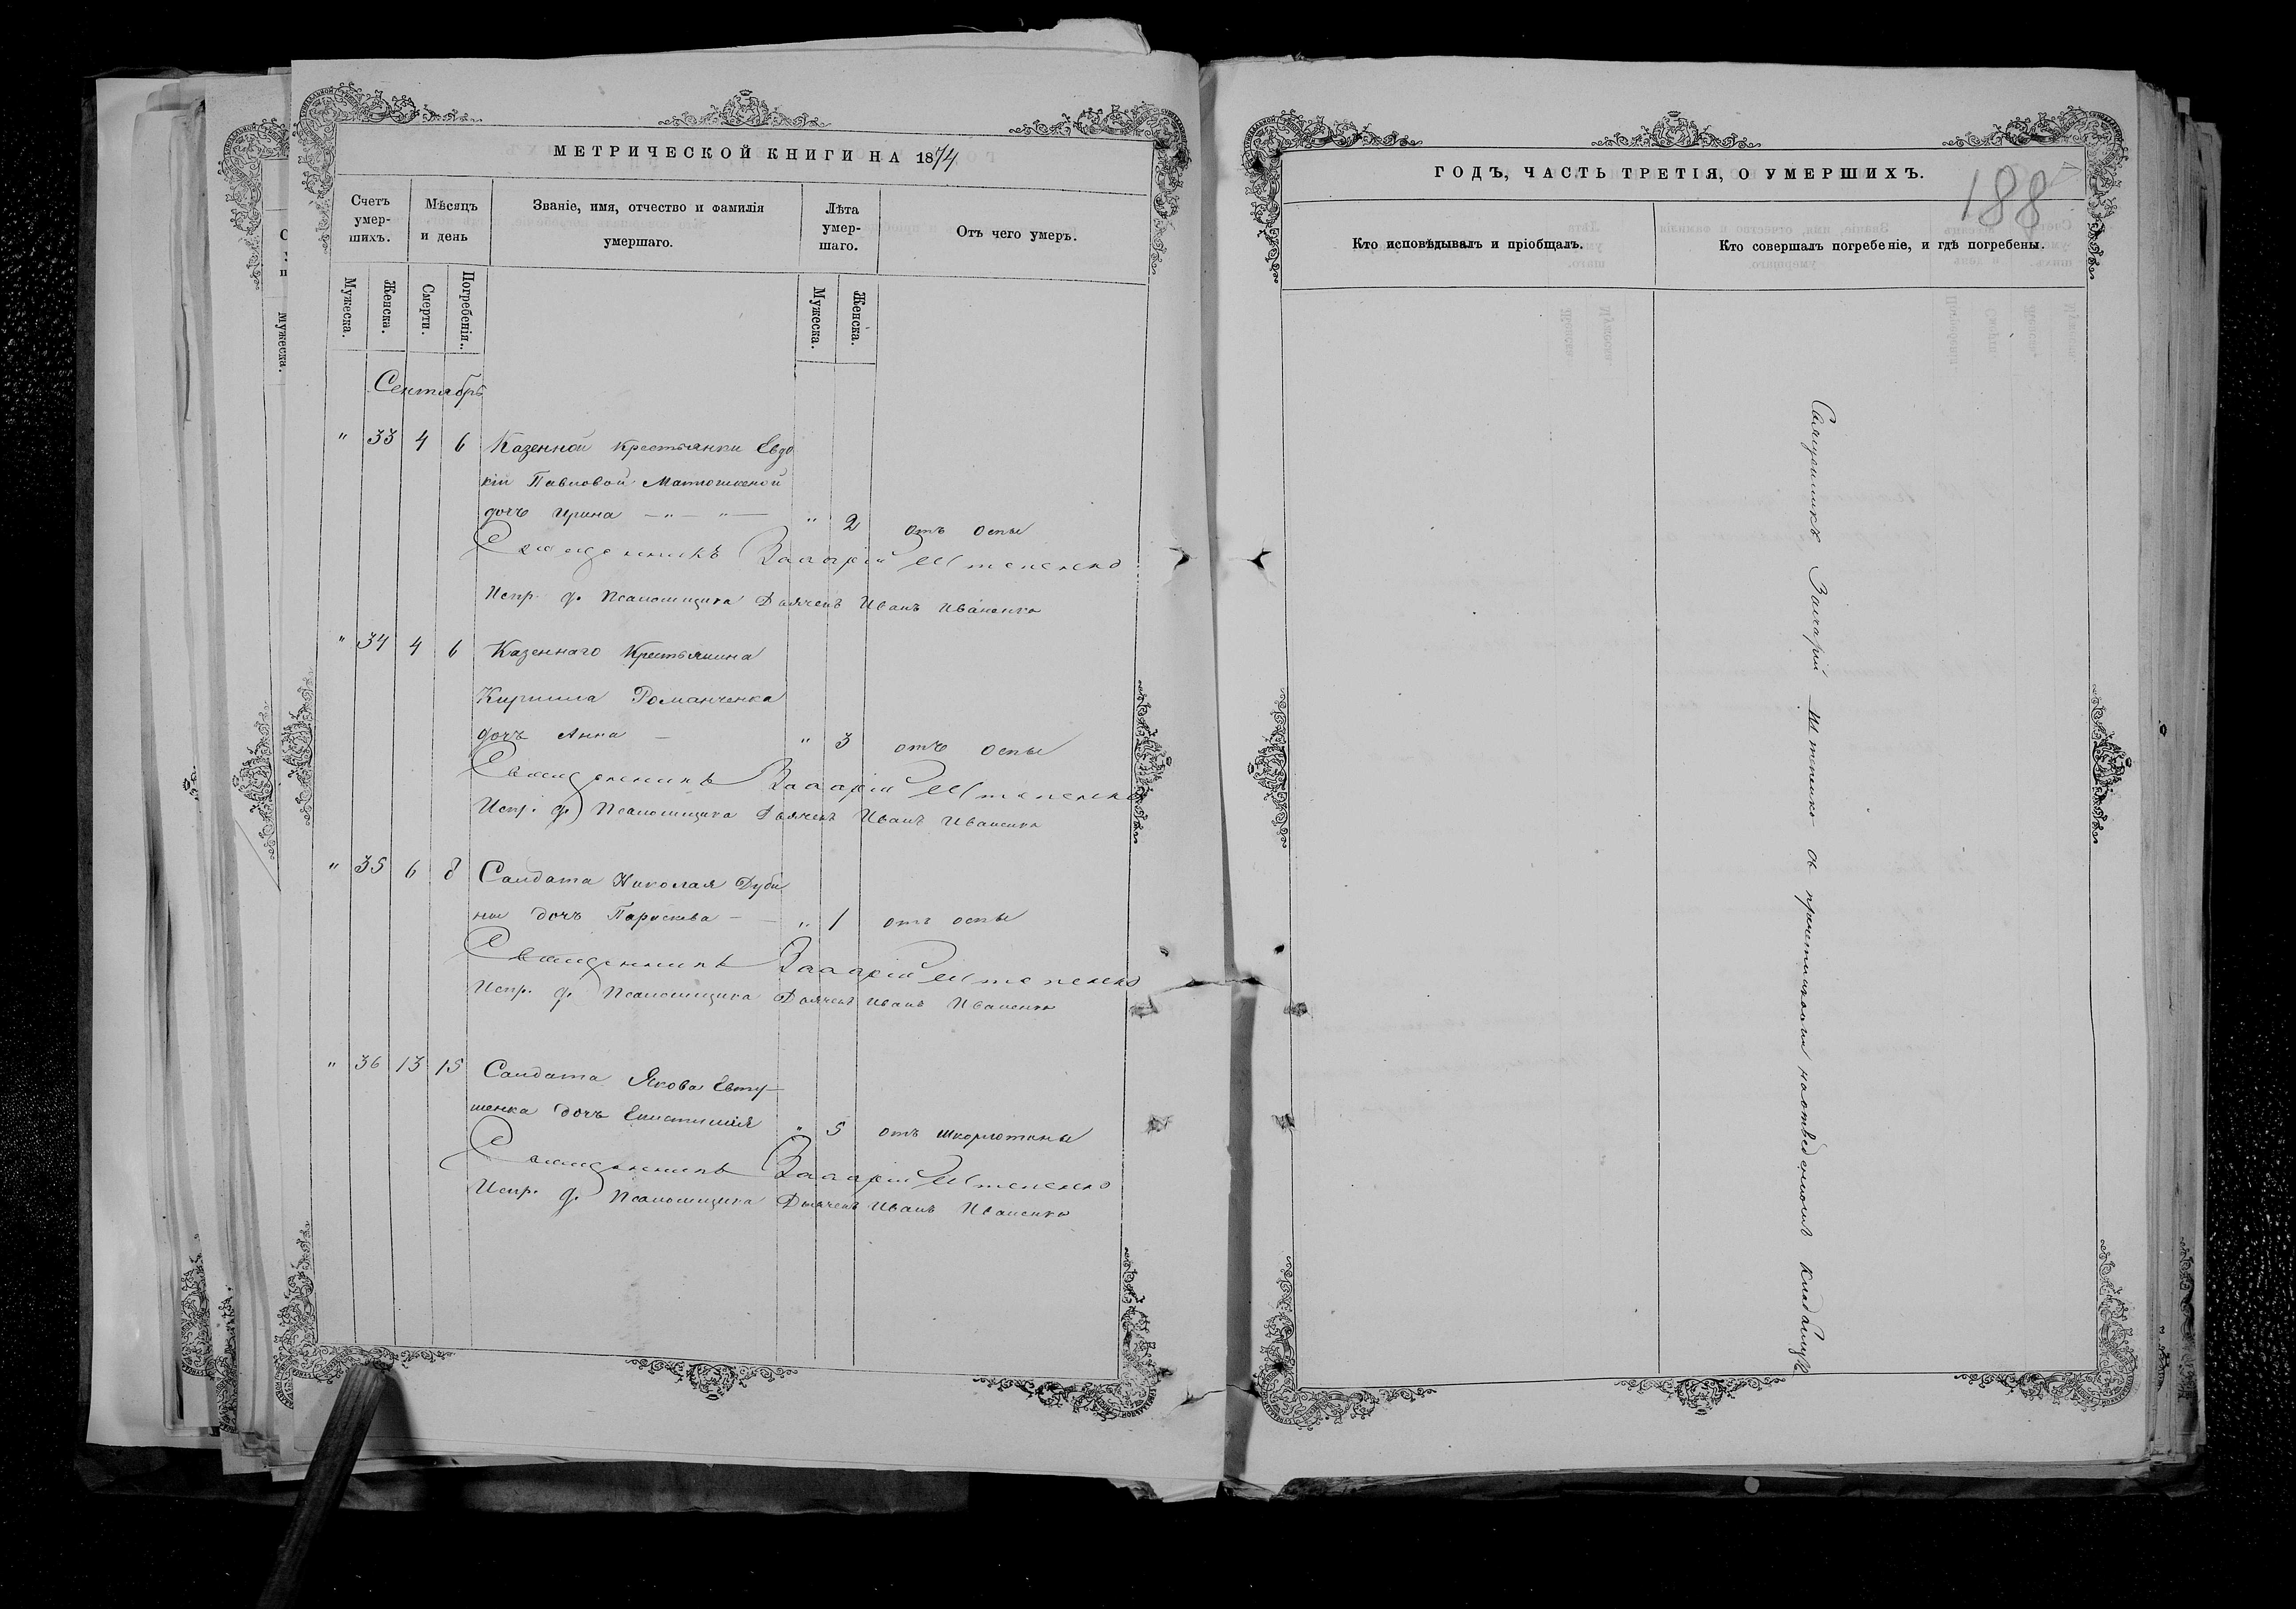 МЕТРИЧЕСКОЙ КНИГИ НА 1874
Счетъ умер-шихъ.
Мѣсяцъ и день
Званіе, имя, отчество и фамилія умершаго.
Лѣта умер-шаго.
Отъ чего умеръ.
Мужеска.
Женска.
Смерти.
Погребенія.
Мужеска.
Женска.
Сентябрь
" 33 4 6 Казенной крестьянки Евдо
кіи Павловой Матюшкеной
дочь Ирина — " — " — " 2 отъ оспы
Священникъ Захарій Штепенко
Испр. д. Псаломщика Дьячекъ Иванъ Иваненко
" 34 4 6 Казеннаго Крестьянина
Кирилла Романченка
дочь Анна — " 3 отъ оспы
Священникъ Захарій Штепенко
Испр. д. Псаломщика Дьячекъ Иванъ Иваненко
" 35 6 8 Салдата Николая Дуби
ны дочь Параскева — " 1 отъ оспы
Священникъ Захарій Штепенко
Испр. д. Псаломщика Дьячекъ Иванъ Иваненко
" 36 13 15 Салдата Якова Евту-
шенка дочь Епистимія " 5 отъ шкорлотины
Священникъ Захарій Штепенко
Испр. д. Псаломщика Дьячекъ Иванъ Иваненко
ГОДЪ, ЧАСТЬ ТРЕТІЯ, О УМЕРШИХЪ.
188
Кто исповѣдывалъ и пріобщалъ.
Кто совершалъ погребеніе, и гдѣ погребены.
Священникъ Захарій Штепенко съ причетниками на отведенномъ кладбищѣ